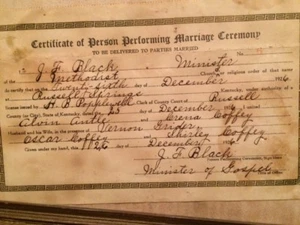 Certificate of Person Performing Marriage Ceremony
TO BE DELIVERED TO PARTIES MARRIED
I, J. F. Black Minister
of the Methodist Church, or religious order of that name
do certify that on the Twenty Sixth day of December
at Russell Springs Kentucky, under authority of a
issued by H. B. Popplewell Clerk of County Court of Russell
County State of Kentucky, dated 23 December
Crena Coffey
Husband and his Wife, in the presence of Vernon Grider
Oscar Coffey and Shirley Coffey
Given under my hand, this 26 day of December
J. F. Black
Person Performing Ceremony
Minister of Gospel